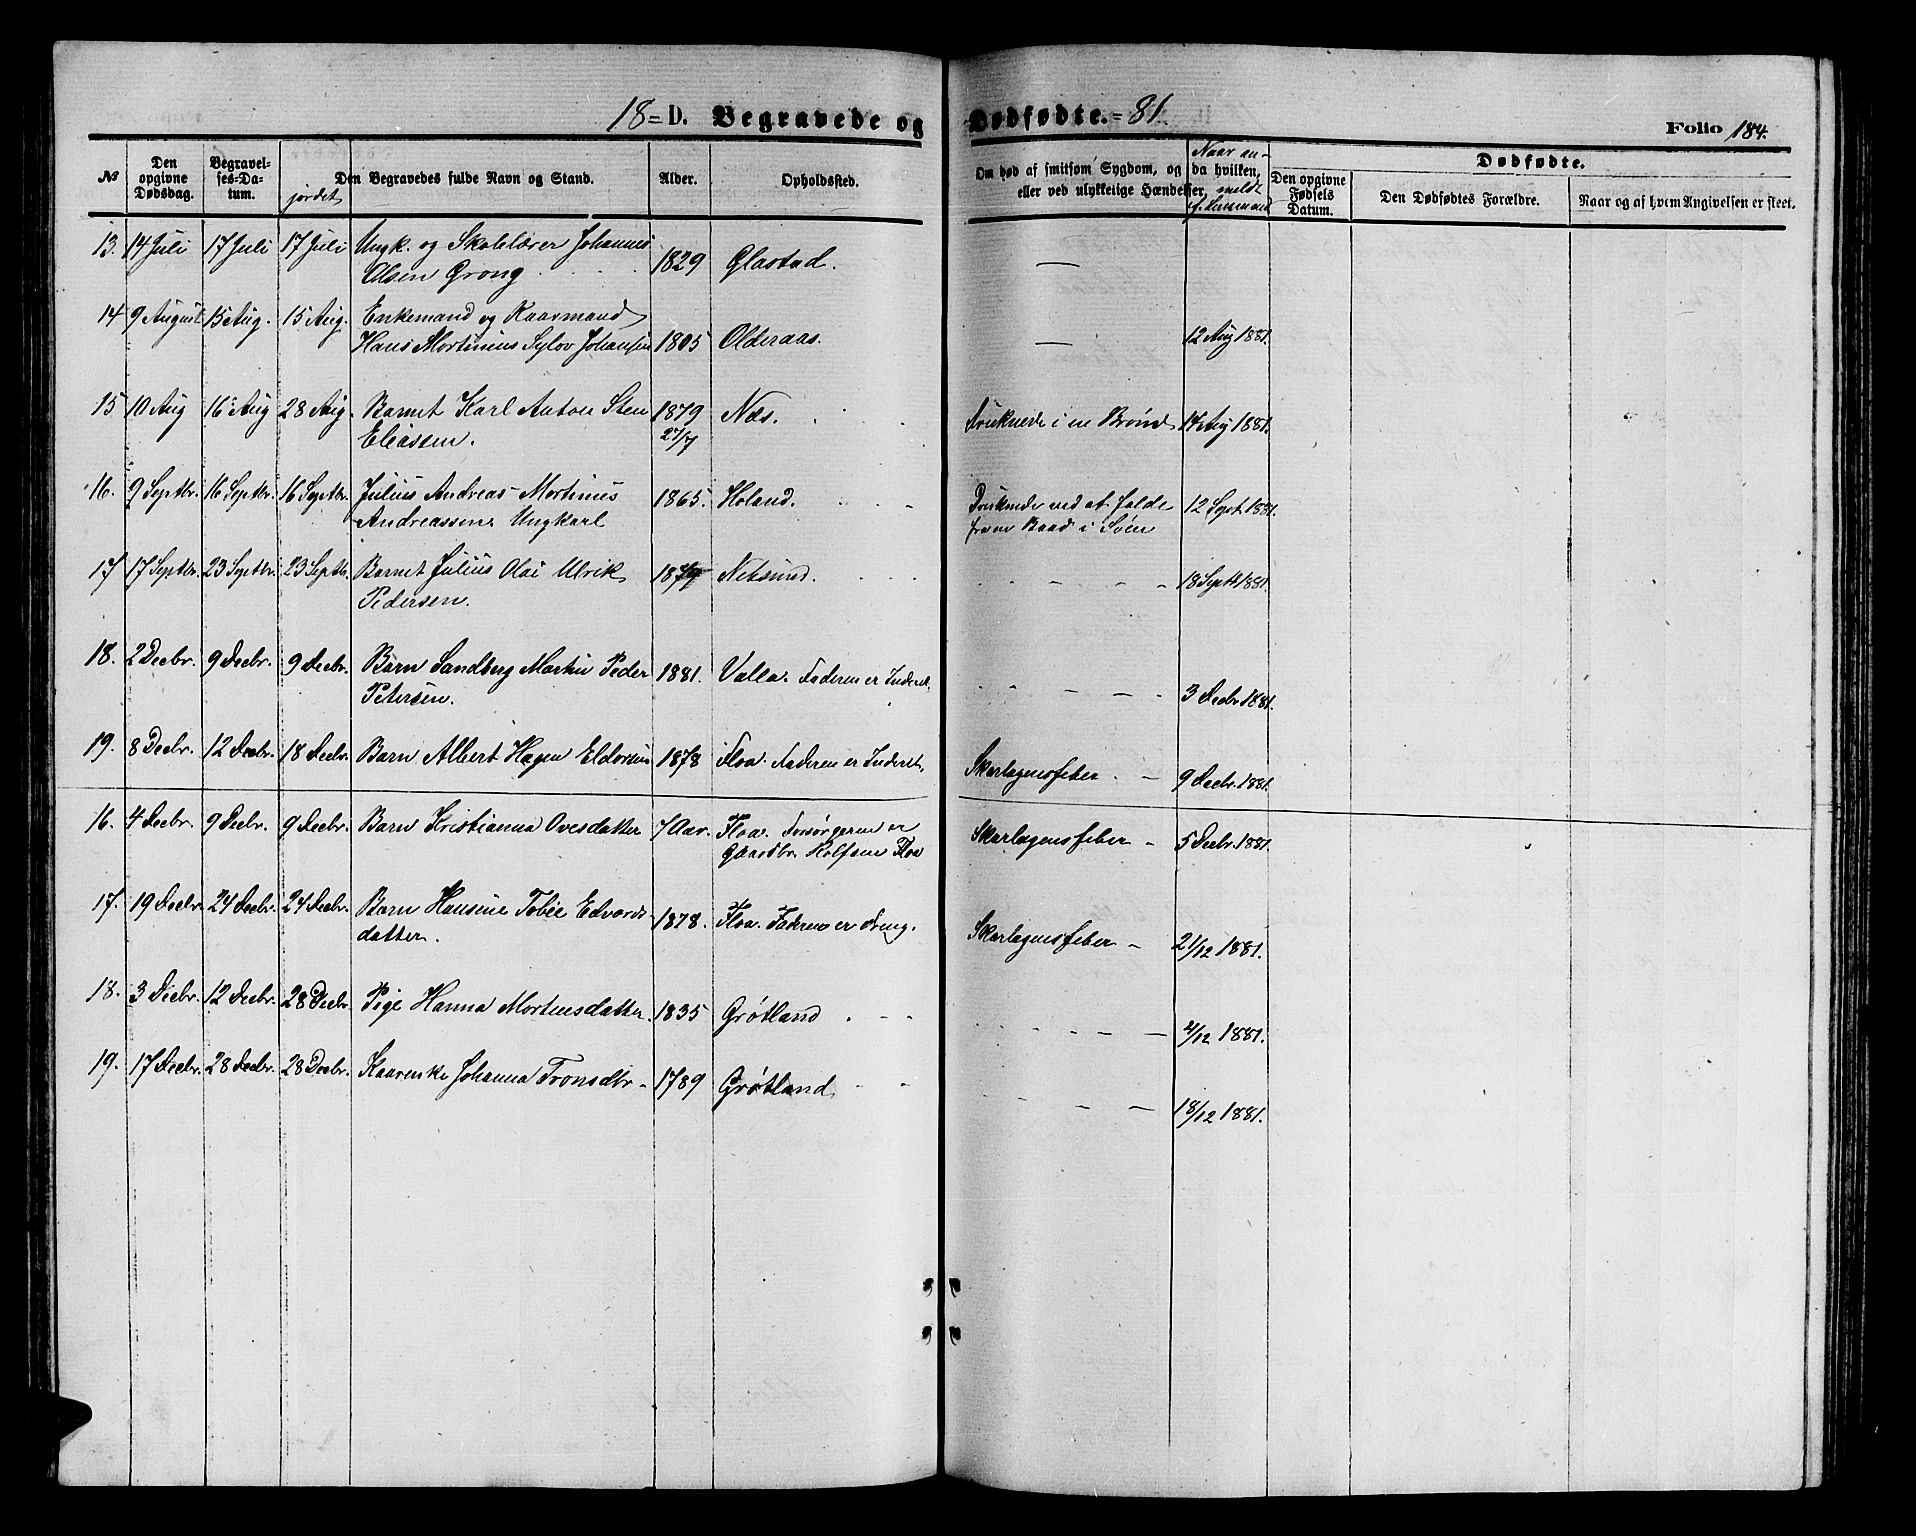 18 = D. Begravede og Dødfødte. = 81.
Folio 184.
№
Den opgivne Dødsdag.
Begravelses-Datum.
jordet
Den Begravedes fulde Navn og Stand.
Alder.
Opholdssted.
Om død af smitsom Sygdom, og da hvilken, eller ved ulykkelige Hændelser,
Naar anmeldt f. Lensmand
Dødfødte.
Den opgivne Fødsels Datum.
Den Dødfødtes Forældre.
Naar og af hvem Angivelsen er skeet.
13. 14 Juli 17 Juli 17 Juli Ungk. og Skolelærer Johannes
Olsen Grong 1829 Glastad. —
14 9 August 15 Aug. 15 Aug. Enkemand og Kaarmand
Hans Mortinius Sylov Johansen 1805 Olderaas. — 12 Aug 1881.
15 10 Aug 16 Aug 28 Aug. Barnet Karl Anton Sten 1879 Næs. Druknede i en Brønd 14 Aug 1881.
Eliassen. 27/7
16. 9 Septbr. 16 Septbr. 16 Septbr. Julius Andreas Mortinus 1865. Holand. Druknede ved at falde 12 Sept. 1881.
Andreassen Ungkarl fra en Baad i Søen
17 17 Septbr. 23 Septbr. 23 Septbr. Barnet Julius Olai Ulrik 1879 18 Septb 1881.
Pedersen.
18. 2 Decbr. 9 Decbr. 9 Decbr. Barn Sandberg Martin Peder 1881. Valla. Faderen er Inderst.
Petersen. 3 Decbr 1881.
19. 8 Decbr. 12 Decbr. 18 Decbr. Barn Albert Hagen 1878 Floa. Faderen er Inderst, Skarlagensfeber 9 Decbr. 1881.
16. 4 Decbr. 9 Decbr. 9 Decbr. Barn Kristianna Ovesdatter 7 Aar. Floa. Forsørgeren er Skarlagensfeber 5 Decbr. 1881.
Gaardbr. Rolfsen Floa
17. 19 Decbr. 24 Decbr. 24 Decbr. Barn Hansine Tobie Edvards- 1878. Floa. Faderen er Dreng. Skarlagensfeber 21/12 1881.
datter.
18. 3 Decbr. 12 Decbr. 28 Decbr. Pige Hanna Mortensdatter. 1835 Grøtland 4/12 1881.
19. 17 Decbr. 28 Decbr. 28 Decbr. Kaarenke Johanna Tronsdtr 1789 Grøtland 18/12 1881.